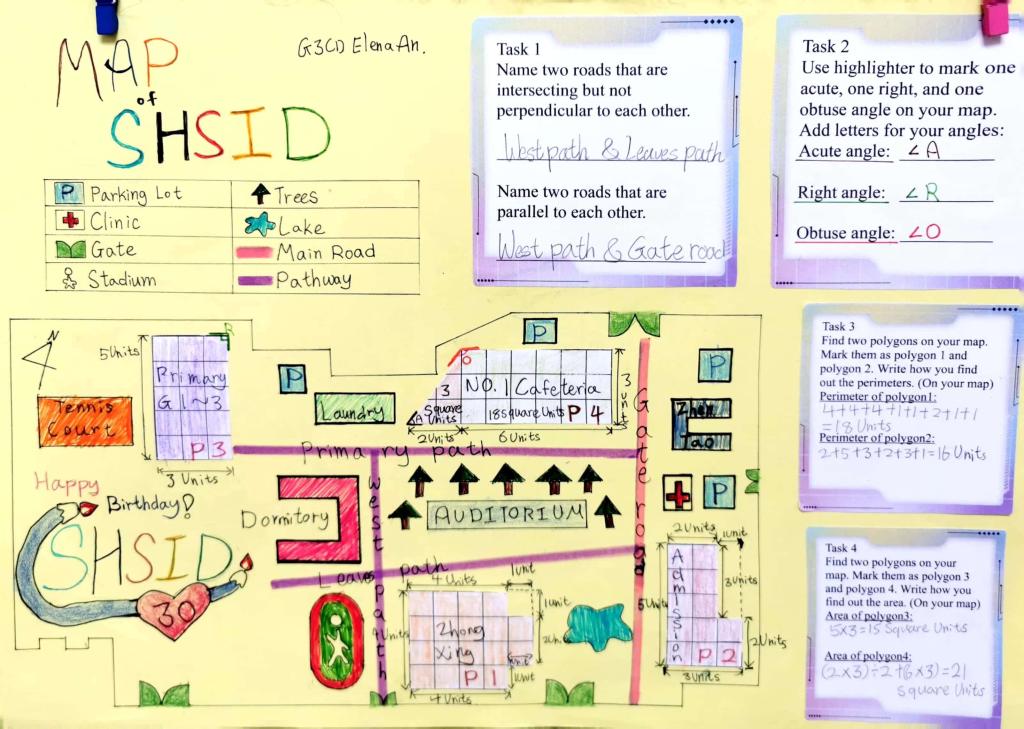 MAP
of
SHSID
G3CD Elena An.
P Parking Lot
Trees
Clinic
Lake
Gate
Main Road
Stadium
Pathway
Task 1
Name two roads that are
intersecting but not
perpendicular to each other.
West path & Leaves path
Name two roads that are
parallel to each other.
West path & Gate road
Task 2
Use highlighter to mark one
acute, one right, and one
obtuse angle on your map.
Add letters for your angles:
Acute angle: ∠A
Right angle: ∠R
Obtuse angle: ∠O
Task 3
Find two polygons on your map.
Mark them as polygon 1 and
polygon 2. Write how you find
out the perimeters. (On your map)
Perimeter of polygon1:
4+4+4+1+1+2+1+1
=18 Units
Perimeter of polygon2:
2+5+3+2+3+1=16 Units
Task 4
Find two polygons on your
map. Mark them as polygon 3
and polygon 4. Write how you
find out the area. (On your map)
Area of polygon3:
5×3=15 Square Units
Area of polygon4:
(2×3)÷2+(6×3)=21
square Units
N
5Units
R
Primary
G1~3
P3
3 Units
Tennis
Court
P
Laundry
P
O
3
Square
Units
A
2Units
NO. 1 Cafeteria
18square Units P4
6Units
3 unit
P
Zhen
Tao
P
Primary path
Gate road
West path
Leaves path
Happy
Birthday!
SHSID
30
Dormitory
AUDITORIUM
4 Units
1unit
1unit
4Units
2Units
Zhong
Xing
P1
unit
1unit
4 Units
2Units
1unit
3Units
5Units
Admission
P2
2Units
3Units